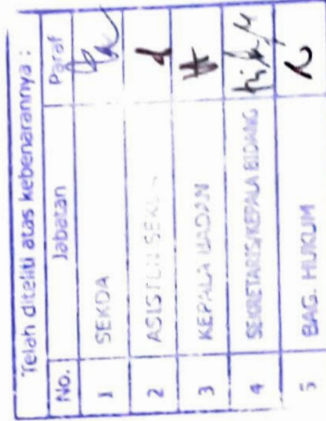 Telah diteliti atas kebenarannya :
No. Jabatan Paraf
1 SEKDA
2 ASISTEN
3 KEPALA BADAN
4 SEKRETARIS/KEPALA BIDANG
5 BAG. HUKUM